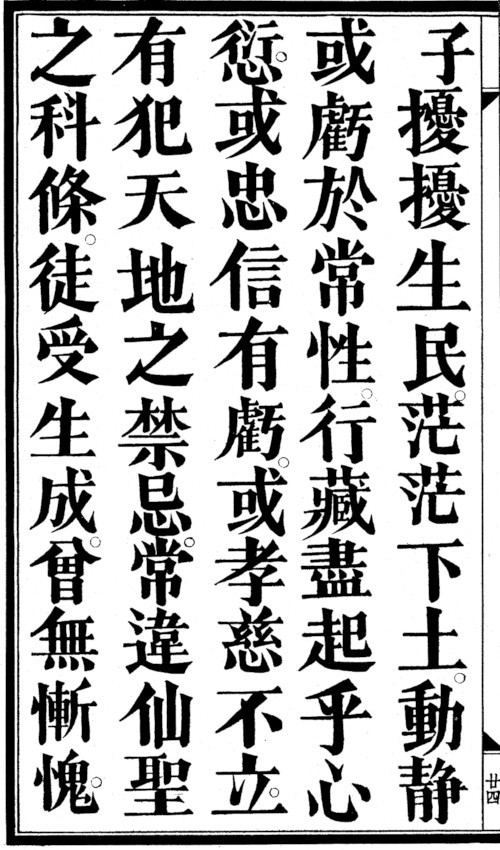 子擾擾生民。茫茫下土。動静
或虧於常性。行藏盡起乎心
愆。或忠信有虧。或孝慈不立。
有犯天地之禁忌。常違仙聖
之科條。徒受生成。曾無慚愧。
廿四